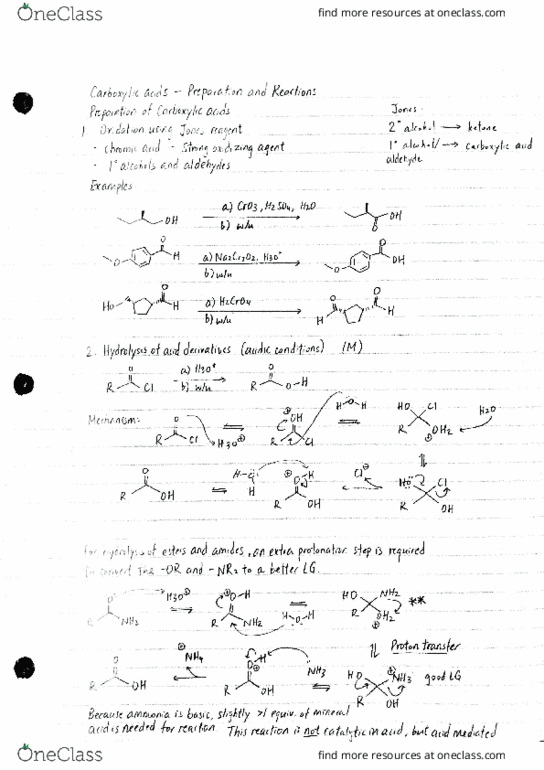 OneClass
find more resources at oneclass.com
Carboxylic acids - Preparation and Reactions
Preparation of Carboxylic acids
Jones:
1 Oxidation using Jones reagent
2° alcohol → ketone
· Chromic acid - Strong oxidizing agent
1° alcohol/ → carboxylic acid
aldehyde
· 1° alcohols and aldehydes
Examples
OH a) CrO3, H2SO4, H2O b) w/u O OH
O H a) Na2Cr2O7, H3O+ b) w/u O OH
HO O H a) H2CrO4 b) w/u O H O H
2. Hydrolysis of acid derivatives (acidic conditions) (M)
R O Cl a) H3O+ b) w/u R O O-H
Mechanism:
R O Cl H3O⊕ ⇌ ⊕OH R Cl H-O-H ⇌ HO Cl R OH2 ⊕ H2O
R O OH ⇌ H-O-H R O⊕ H OH Cl⊖ HO Cl R OH
For hydrolysis of esters and amides, an extra protonation step is required
to convert the -OR and -NR2 to a better LG.
R O NH2 H3O⊕ ⇌ ⊕O-H R NH2 H-O-H ⇌ HO NH2 R OH2 ⊕ **
⇌ Proton transfer
R O OH ⊕NH4 O⊕ H R OH NH3 ⇌ HO ⊕NH3 R OH good LG
Because ammonia is basic, slightly >1 equiv. of mineral
acid is needed for reaction. This reaction is not catalytic in acid, but acid mediated
OneClass
find more resources at oneclass.com